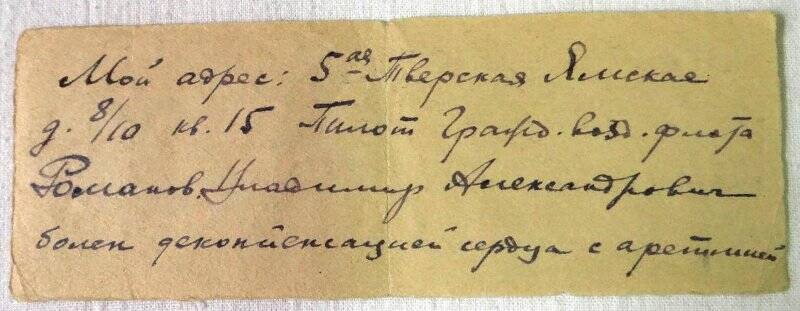 Мой адрес: 5ая Тверская Ямская
д. 8/10 кв. 15 Пилот Гражд. возд. флота
Романов Владимир Александрович
болен декомпенсацией сердца с аретмией